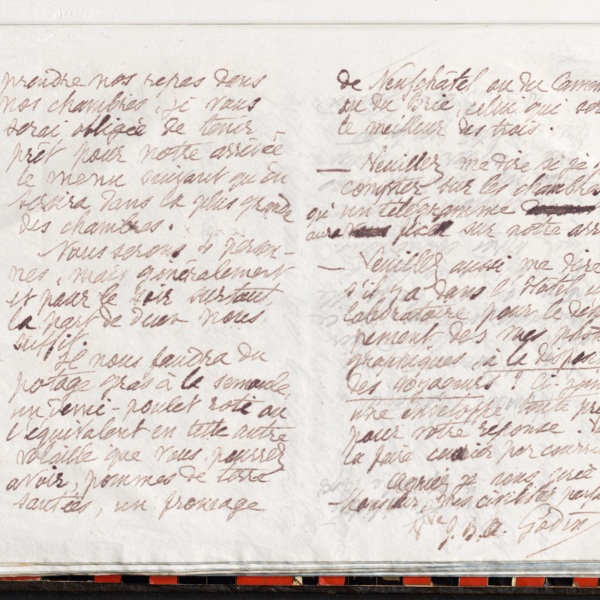 prendre nos repas dans
nos chambres. Je vous
serai obligée de tenir
prêt pour notre arrivée
le menu suivant qu'on
servira dans la plus grande
des chambres.
Nous serons 4 person-
nes, mais généralement
et pour le soir surtout
la part de deux nous
suffit.
Il nous faudra du
potage gras à la semoule,
un demi-poulet rôti ou
l'équivalent en toute autre
volaille que vous pourrez
avoir, pommes de terre
sautées, un fromage
de Neufchâtel ou du Camem
ou du Brie, celui qui
le meilleur des trois.
— Veuillez me dire si je
compter sur les chambres
qu'un télégramme
sur notre arri
— Veuillez aussi me dire
s'il y a dans
laboratoire pour le déve
pement des vues photo
graphiques, à la dispos
des voyageurs? Ci-join
une enveloppe toute prê
pour votre réponse.
la faire courrier par courri
agréez je vous prie
Monsieur, mes civilités
Vve J. B. A. Godin